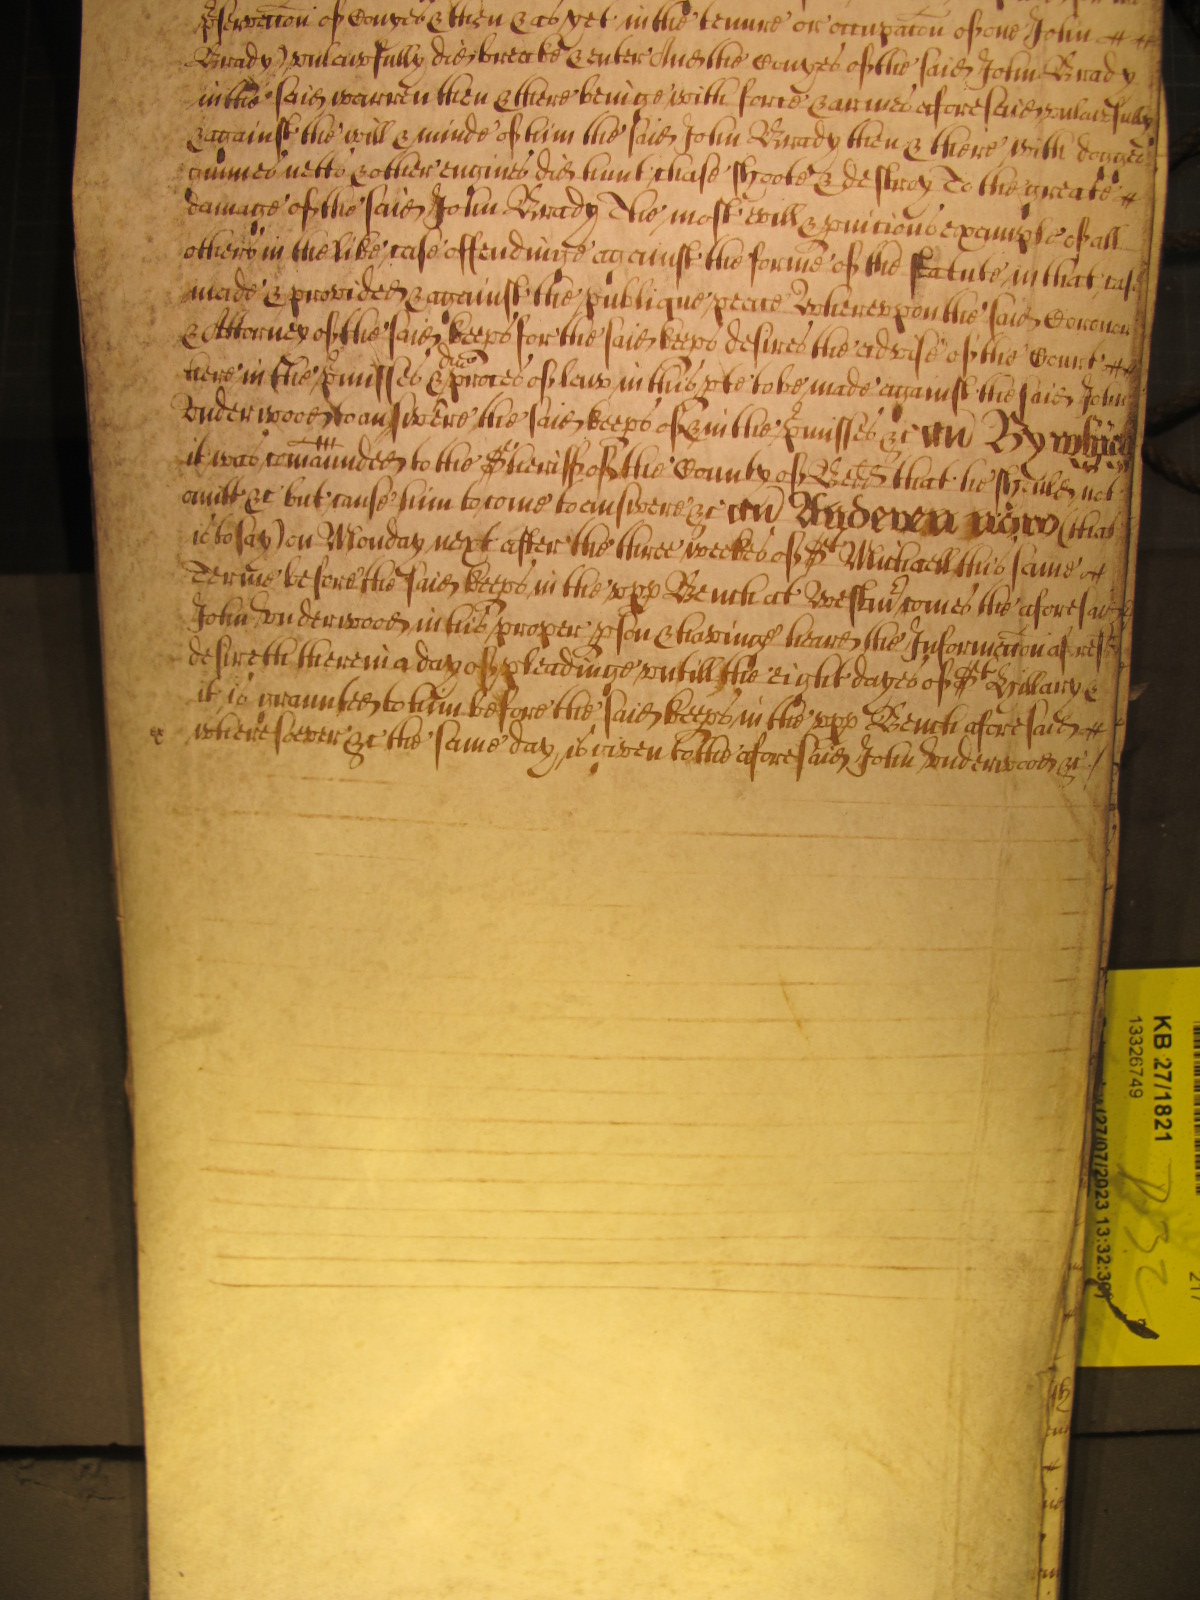 p̱servac̃on of Conyes & then & as yet in the tenure or occupac̃on of one John
Brady) unlawfully did breake & enter And the Conyes of the said John Brady
in the said warren then & there beinge with force & armes aforesaid unlawfully
& against the will & minde of him the said John Brady then & there with dogges
gunnes netts & other engines did hunt chase shoote & destroy To the greate
damage of the said John Brady The most evill & p̱nicious example of all
others in the like case offendinge against the forme of the statute in that case
made & provided & against the publique peace Whereupon the said Coronor
& Attorney of the said keeps for the said keeps desires the advise of the Court
here in the p̱misses & due proces of law in this p̱te to be made against the said John
Underwood to answere the said keeps of & in the p̱misses &c And By which
it was com̃aunded to the Sheriff of the County of that he should not
omitt &c but cause him to come to answere &c And And even now (that
is to say) on Monday next after the three weekes of St Michaell this same
Terme before the said keeps in the upp Bench at Westmr comes the aforesaid
John Underwood in his proper p̱son & havinge heard the Informac̃on aforesd
desireth therein a day of pleadinge untill the eight dayes of St Hillary &
it is graunted to him before the said keeps in the upp Bench aforesaid
wheresoever &c the same day is given to the aforesaid John Underwood &c /
KB 27/1821
13326749
(27/07/2023 13:32:38)
217